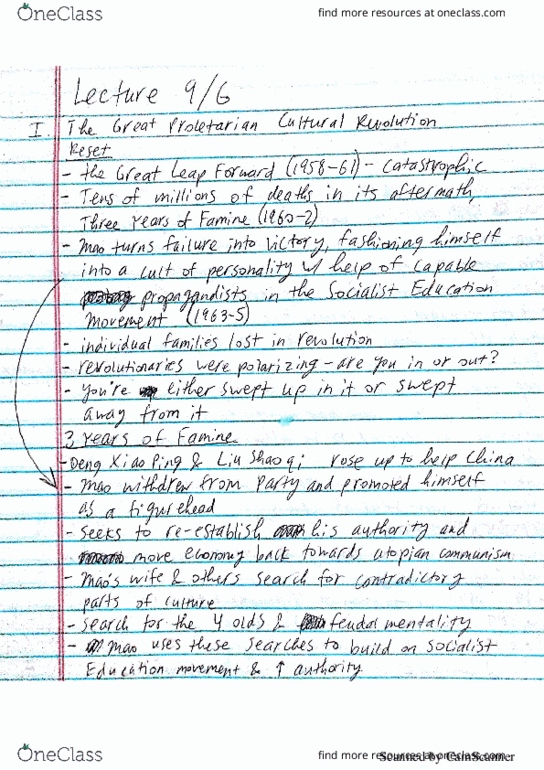 OneClass
find more resources at oneclass.com
Lecture 9/6
I. The Great Proletarian Cultural Revolution
Reset
- the Great Leap Forward (1958-61) - catastrophic
- Tens of millions of deaths in its aftermath,
Three Years of Famine (1960-2)
- Mao turns failure into victory, fashioning himself
into a cult of personality w/ help of capable
propagandists in the Socialist Education
Movement (1963-5)
- individual families lost in revolution
- revolutionaries were polarizing - are you in or out?
- you're either swept up in it or swept
away from it
3 Years of Famine
- Deng Xiao Ping & Liu Shao qi rose up to help China
- Mao withdrew from Party and promoted himself
as a figurehead
- seeks to re-establish his authority and
move economy back towards utopian communism
- Mao's wife & others search for contradictory
parts of culture
- search for the 4 olds & feudal mentality
- Mao uses these searches to build on Socialist
Education movement & ↑ authority
OneClass
find more resources at oneclass.com
Scanned by CamScanner